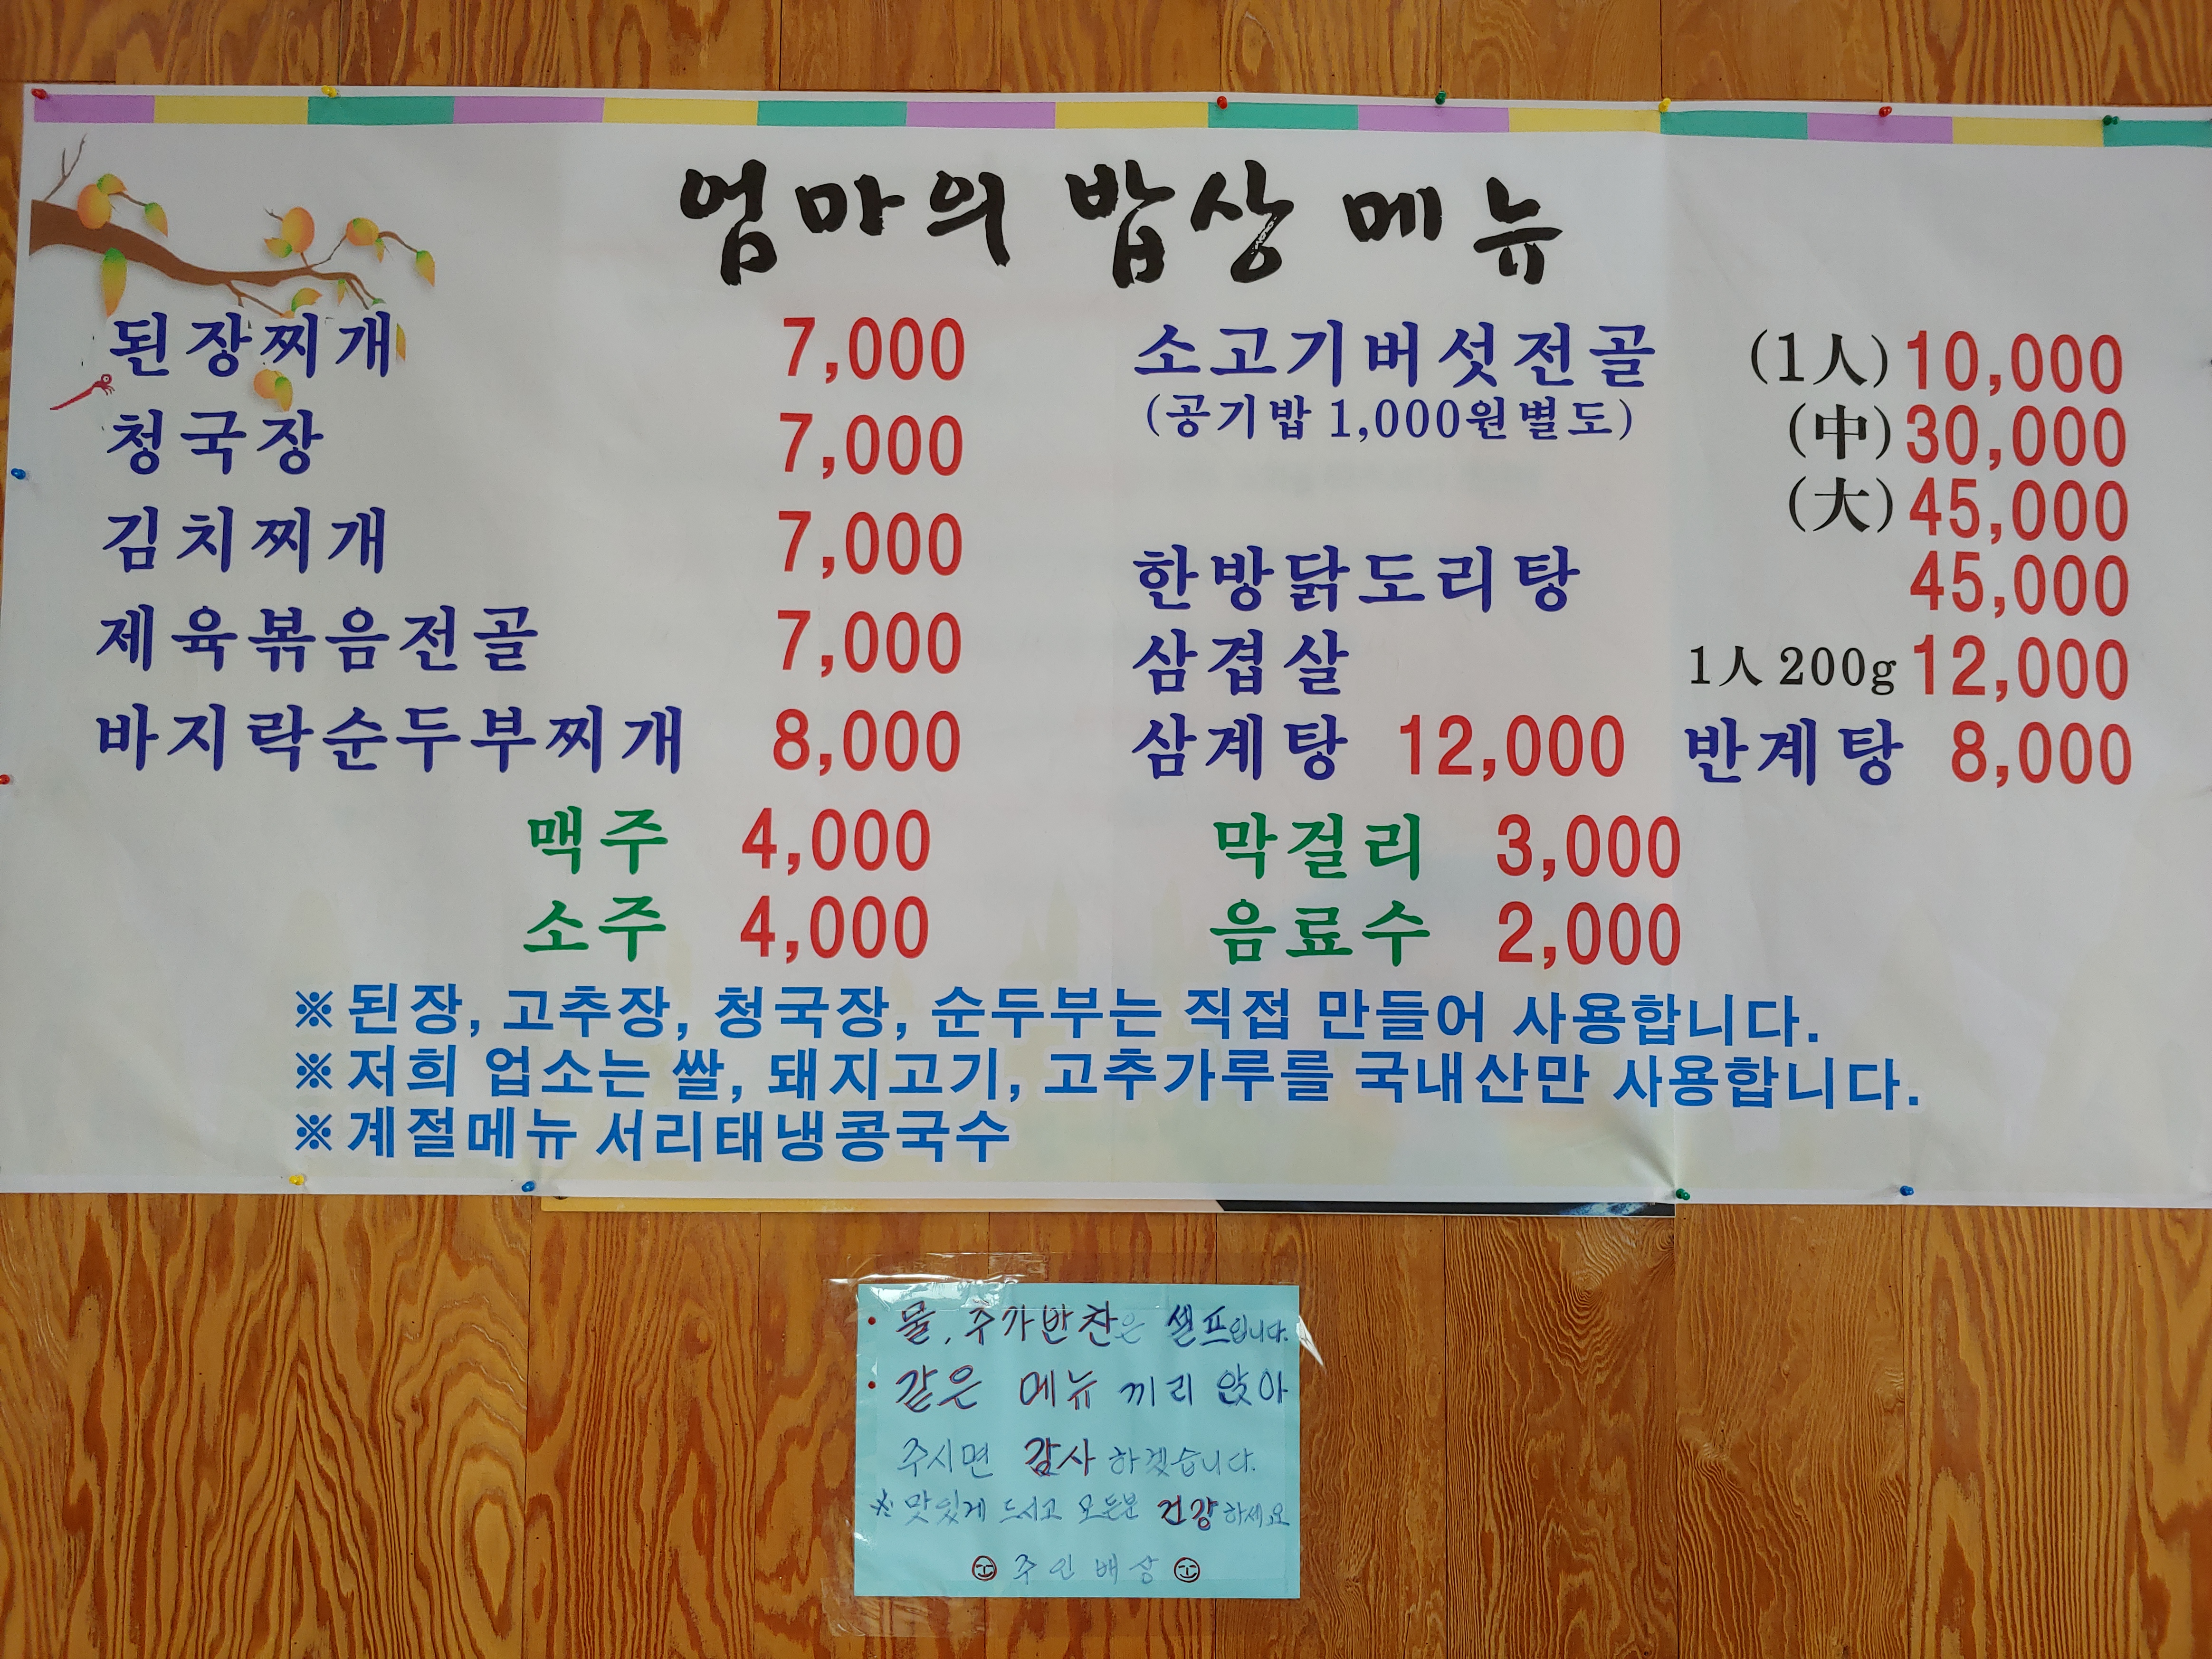 엄마의 밥상 메뉴
된장찌개 7,000
청국장 7,000
김치찌개 7,000
제육볶음전골 7,000
바지락순두부찌개 8,000
소고기버섯전골 (1人) 10,000
(공기밥 1,000원별도) (中) 30,000
(大) 45,000
한방닭도리탕 45,000
삼겹살 1人 200g 12,000
삼계탕 12,000 반계탕 8,000
맥주 4,000 막걸리 3,000
소주 4,000 음료수 2,000
※된장, 고추장, 청국장, 순두부는 직접 만들어 사용합니다.
※저희 업소는 쌀, 돼지고기, 고추가루를 국내산만 사용합니다.
※계절메뉴 서리태냉콩국수
• 물, 추가반찬은 셀프입니다.
• 같은 메뉴 끼리 앉아
주시면 감사하겠습니다.
※ 맛있게 드시고 모든분 건강하세요
주인배상